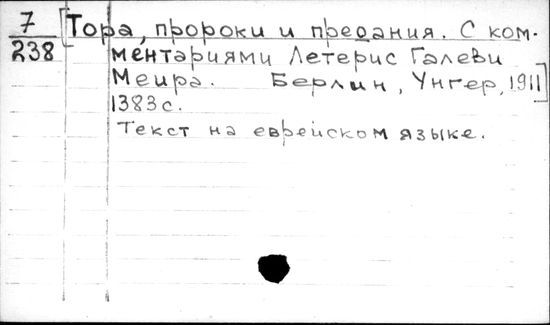 7
238
[Тора, пророки и предания. С ком-
ментариями Летерис Галеви
Меира. Берлин, Унгер, 1911]
1383 с.
Текст на еврейском языке.